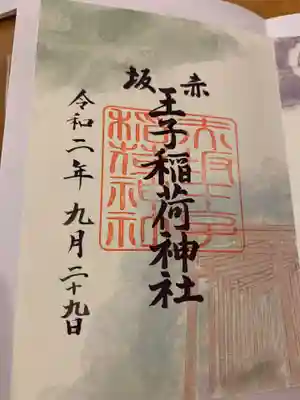 赤坂
王子稲荷神社
令和二年九月二十九日